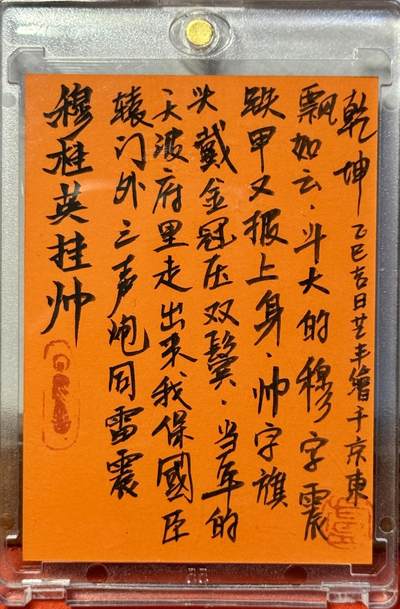 穆桂英挂帅
辕门外三声炮同雷震
天波府里走出来、我保國臣
头戴金冠压双鬓、当年的
铁甲又披上身、帅字旗
飘如云、斗大的穆字震
乾坤 乙巳吉日 繪于京東